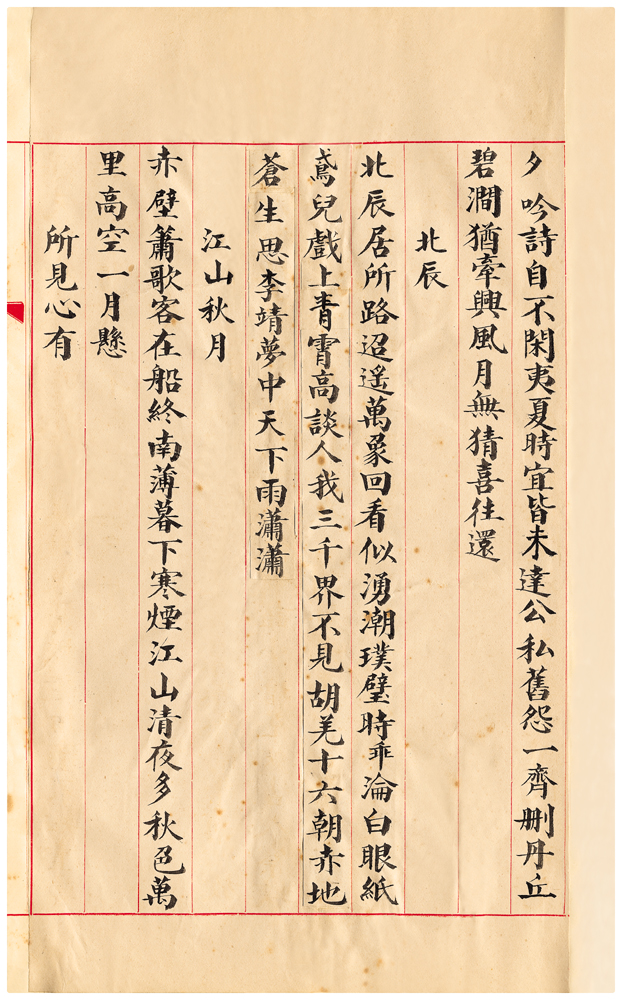 夕吟詩自不閑夷夏時宜皆未達公私舊怨一齊刪丹丘
碧澗猶牽興風月無猜喜往還
北辰
北辰居所路迢遙萬象回看似湧潮璞璧時乖淪白眼紙
鳶兒戲上青霄高談人我三千界不見胡羌十六朝赤地
蒼生思李靖夢中天下雨瀟瀟
江山秋月
赤壁簫歌客在船終南薄暮下寒煙江山清夜多秋色萬
里高空一月懸
所見心有